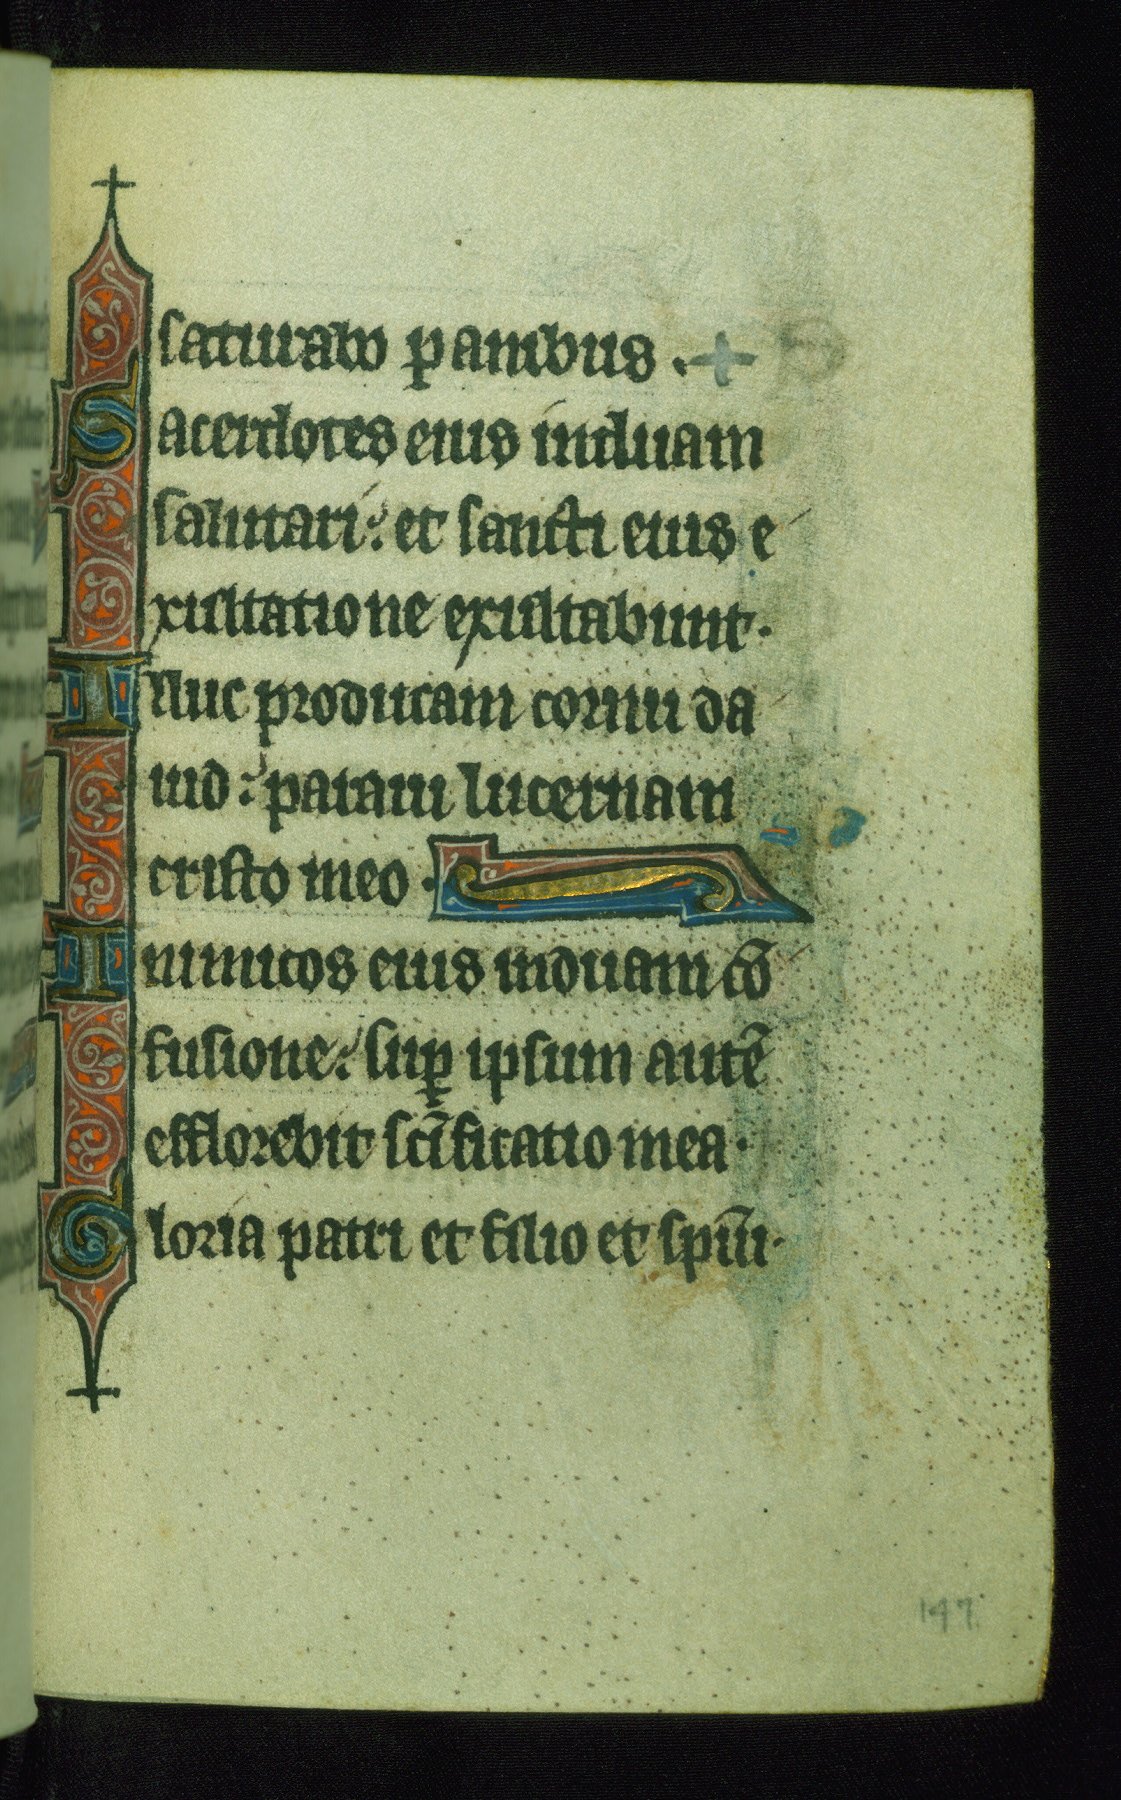 saturabo panibus .
Sacerdotes eius induam
salutari: et sancti eius e
xultatione exultabunt.
Illuc producam cornu da
uid: paraui lucernam
cristo meo .
Inimicos eius induam cō
fusione: sup̱ ipsum autē
efflorebit scīficatio mea.
Gloria patri et filio et spūi.
147.